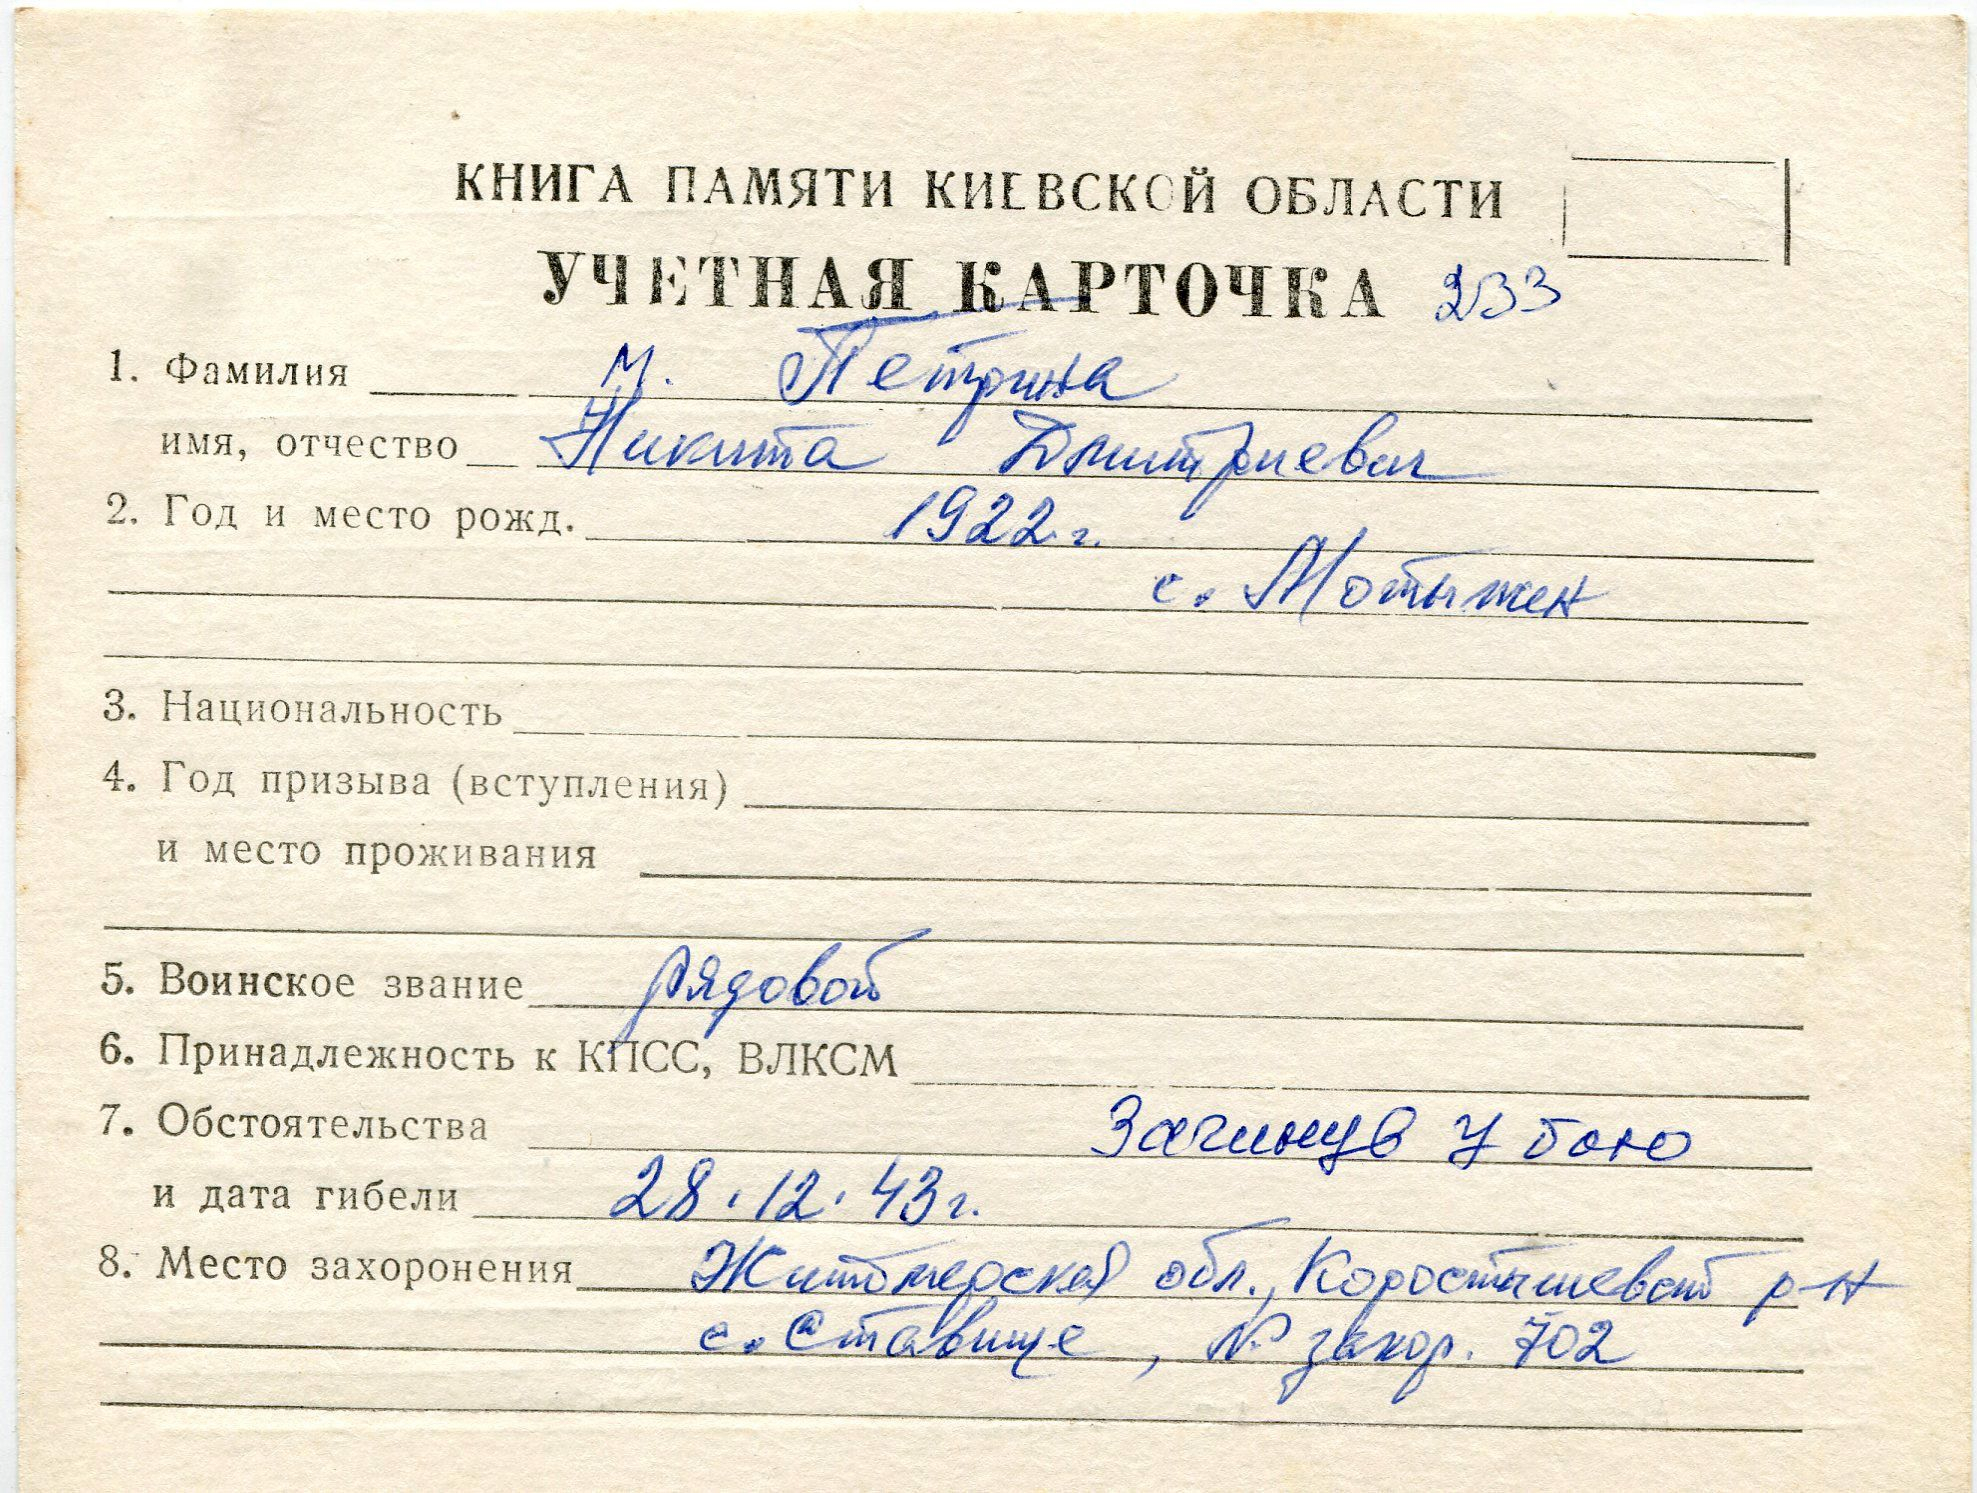 КНИГА ПАМЯТИ КИЕВСКОЙ ОБЛАСТИ
УЧЕТНАЯ КАРТОЧКА 233
1. Фамилия М. Петрина
имя, отчество Никита Дмитриевич
2. Год и место рожд. 1922 г.
с. Мотыжен
3. Национальность
4. Год призыва (вступления)
и место проживания
5. Воинское звание рядовой
6. Принадлежность к КПСС, ВЛКСМ
7. Обстоятельства Загинув у бою
и дата гибели 28.12.43 г.
8. Место захоронения Житомерская обл., Коростышевский р-н
с. Ставище, № захор. 702